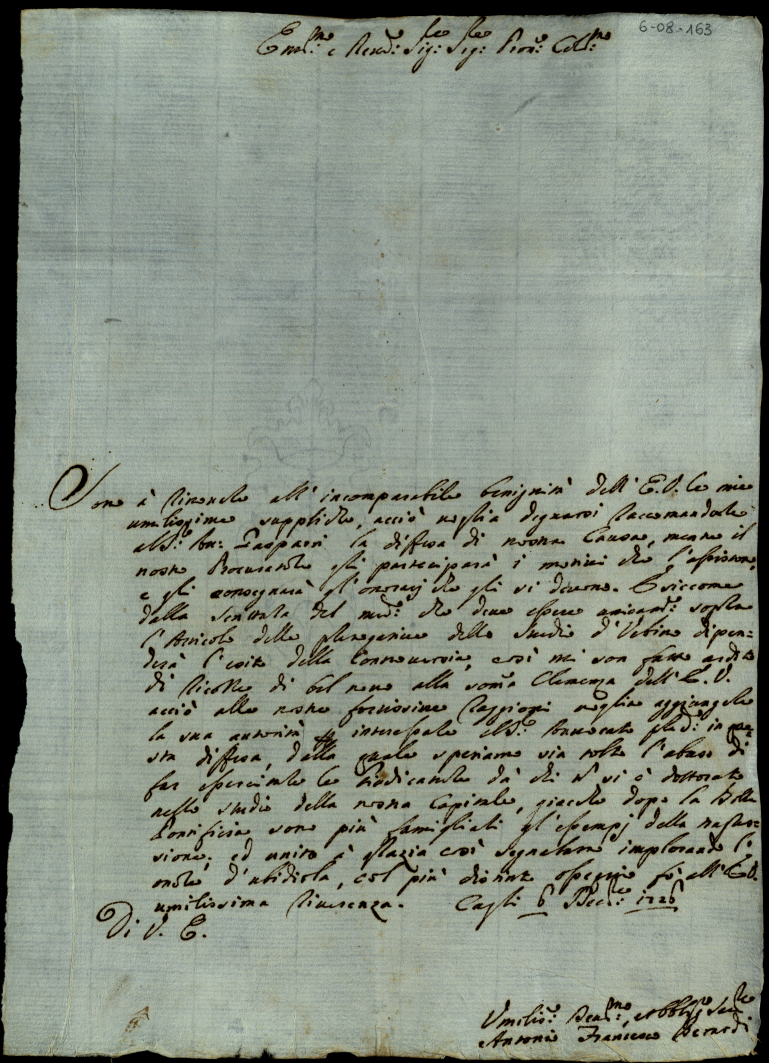 6-08-163
Em.mo e Rev.mo Sig.re Sig.re Pron. Col.mo
Sono à rinovare all' incomparabile benignità dell' E.V. le mie
umilissime suppliche, acciò voglia degnarsi raccomandare
al S.r Gaspari la diffesa di nostra Causa, mentre il
nostro Procuratore gli parteciparà i motivi che l'assistono,
e gli consegnarà gl'onorarij che gli si devono. E siccome
dalla sentenza del med.o che deve essere sopra
l'Articolo delle prerogative dello Studio d'Urbino dipen-
derà l'esito della Controversia, così mi son fatto ardito
di ricorrere di bel novo alla somma Clemenza dell' E.V.
acciò alle nostre fortissime raggioni voglia aggiungere
la sua autorità interessare il S.r Avvocato in que-
sta diffesa, dalla quale speriamo sia tolto l'abuso di
far esercitare le Giudicature dà chi n si è dottorato
nello studio della nostra Capitale, giache dopo la Bolla
Pontificia sono più famigliari gl'essempj della trasgres-
sione; ed unito à grazia così segnalata implorando l'
onore d'ubidirla, col più distinto ossequio fò all' E.V.
umilissima riverenza. Cagli 6 Dec.re 1726
Di V. E.
Umiliss.o Dev.mo, et Obblig.o Ser.re
Antonio Francesco Berardi